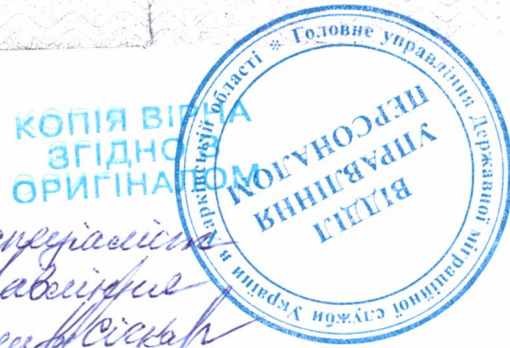 КОПІЯ ВІРНА
ЗГІДНО З
ОРИГІНАЛОМ
* Головне управління Державної міграційної служби України в Харківській області
ВІДДІЛ
УПРАВЛІННЯ
ПЕРСОНАЛОМ